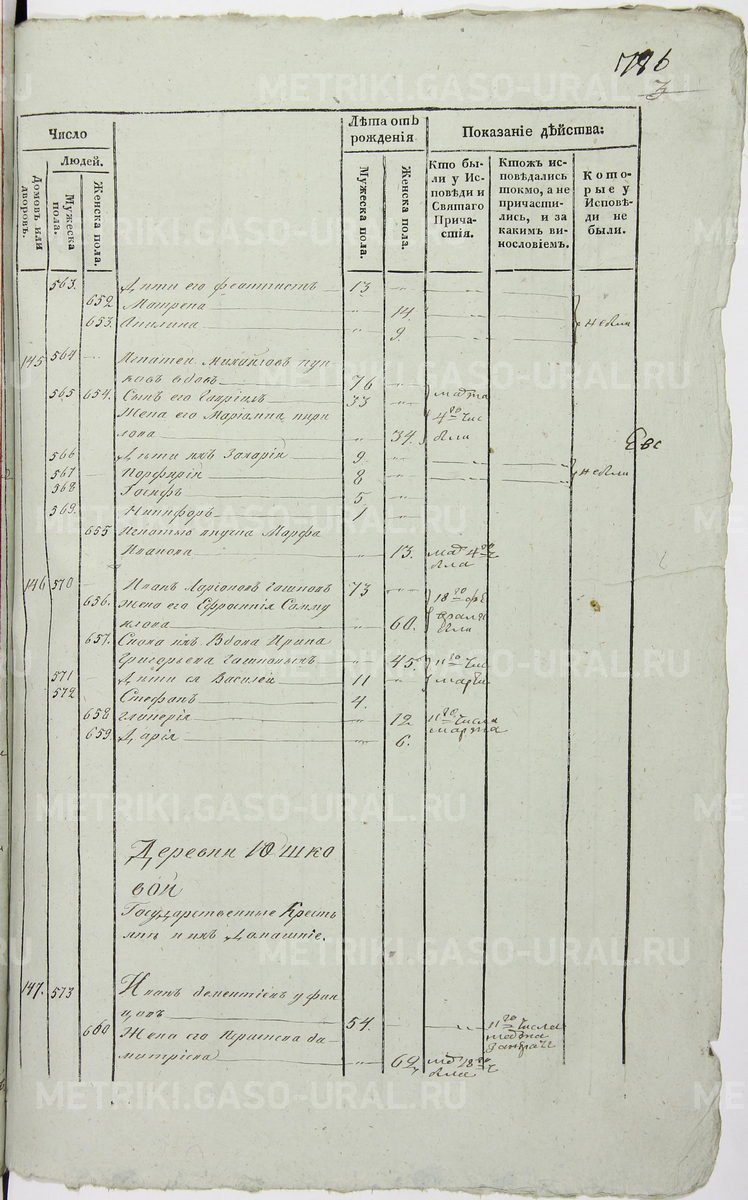 786
3
Число
Лѣта отъ рожденія
Показаніе дѣйства:
Людей.
Домовъ или дворовъ.
Мужеска пола.
Женска пола.
Мужеска пола.
Женска пола.
Кто бы-
ли у Ис-
повѣди и
Святаго
Прича-
стія.
Ктожъ ис-
повѣдались
токмо, а не
причасти-
лись, и за
какимъ ви-
нословіемъ.
Кото-
рые у
Исповѣ-
ди не
были.
563. Дѣти его Феоктистъ 13
652 Матрена 14
653. Акилина 9. не были
145 564 Игнатей Михайловъ
вдовъ 76
565 654. Сынъ его Гаврiилъ 33 марта
Жена его Марiамна Кири
лова 34. 4го чис были
Евс
566 Дѣти ихъ Захарiй 9.
567 Порфирiй 8 не были
568 Iосифъ 5
569. Никифоръ 1
655 Игнатью внучка Марфа
Иванова 13. мар 4го ч была
146 570 Иванъ Ларiоновъ 73
656. Жена его Ефросинiя Саму
илова 60. 18го февраля были
657. Сноха ихъ вдова Ирина
Григорьева 45 11го чис
571 Дѣти ея Василей 11 марта
572 Стефанъ 4.
658 Гликерiя 12 11го числа марта
659. Дарiя 6.
Деревни Юшко
вой
Государственные Кресть
яне и ихъ Домашнiе.
147. 573 Иванъ Дементiевъ
54. 11го числа марта
660 Жена его Ди
митрiева 62, мар 18го ч была
METRIKI.GASO-URAL.RU